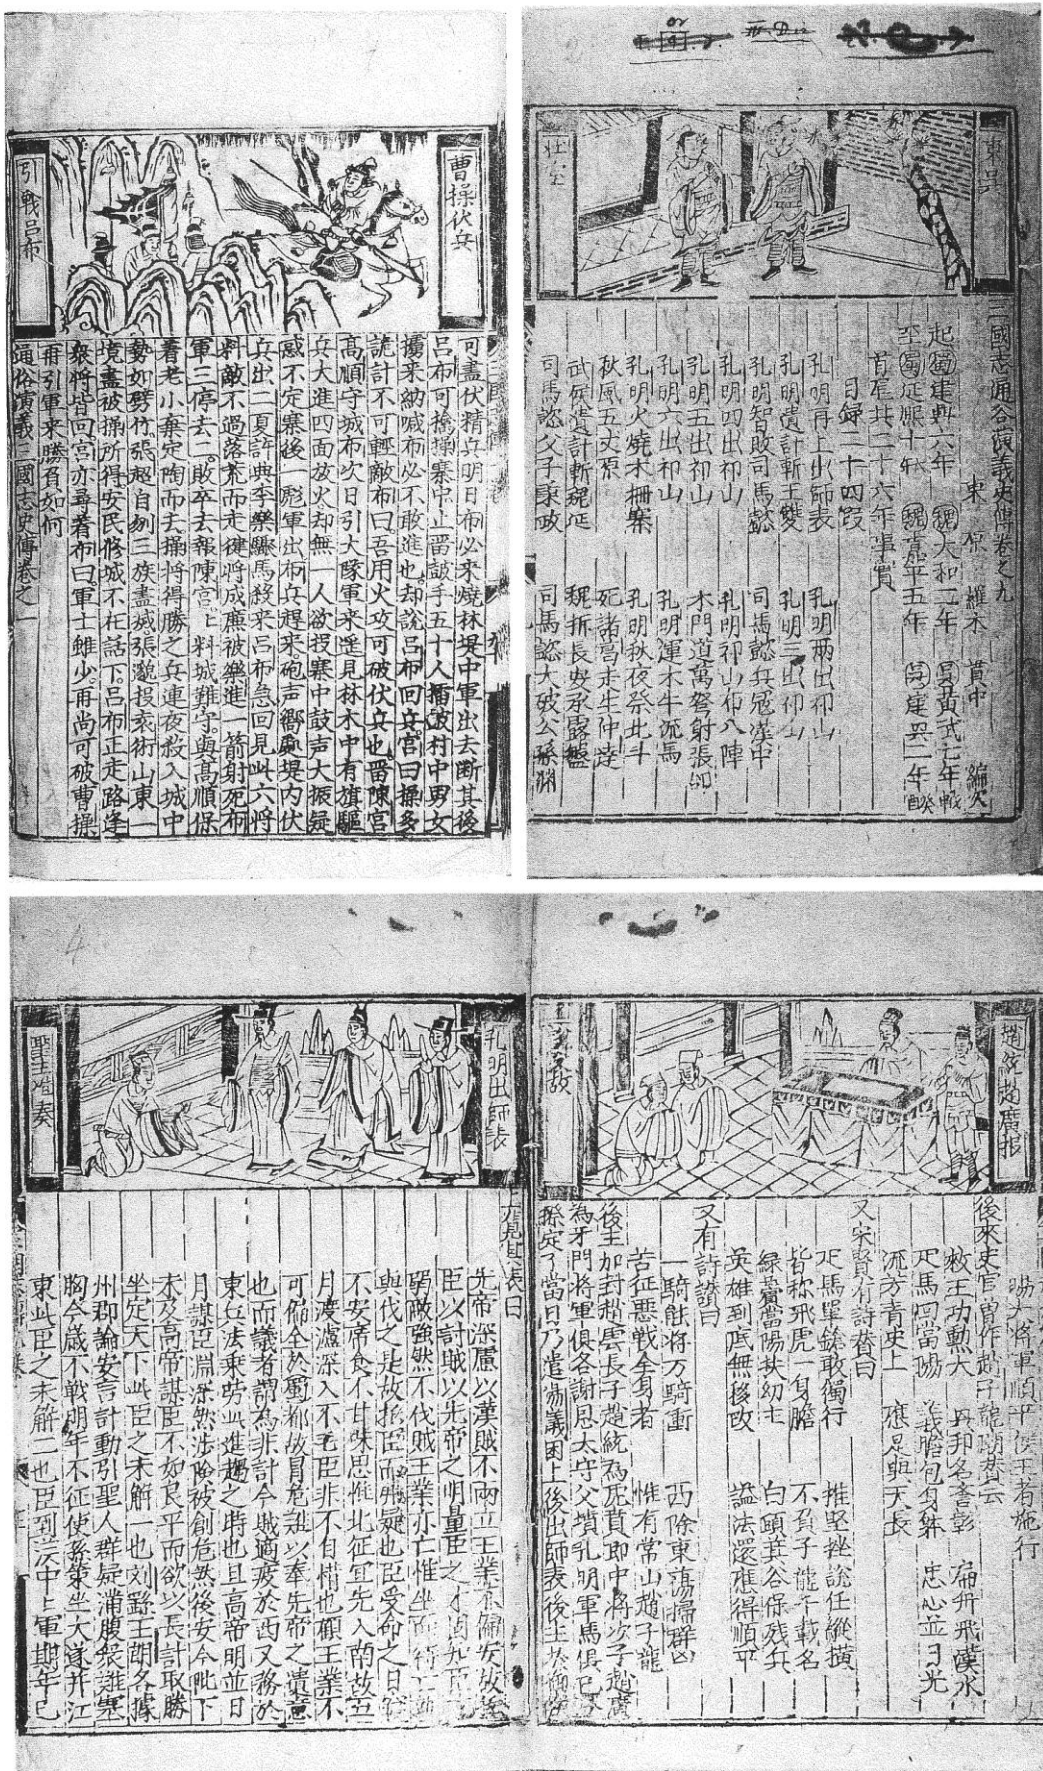 曹操伏兵
引戰呂布
可盡伏精兵明日布必來燒林堤中軍出去断其後
呂布可擒操寨中止畱皷手五十人擂皷村中男女
擄來納喊布必不敢進也却說呂布回兵宮曰操多
詭計不可輕敵布曰吾用火攻可破伏兵也畱陳宮
高順守城布次日引大隊軍來遥見林木中有旗驅
兵大進四面放火却無一人欲投寨中鼓声大振疑
惑不定寨後一彪軍出布兵趕來砲声嚮處堤内伏
兵出二夏許典李樂驟馬殺来吕布急回見此六將
料敵不過落荒而走健將成廉被樂進一箭射死布
軍三停去二敗卒去報陳宮上料城難守與高順保
着老小棄定陶而去操将得勝之兵連夜殺入城中
勢如劈竹張超自刎三族盡滅張邈投袁術山東一
境盡被操所得安民修城不在話下吕布正走路逢
衆將皆回宮亦尋着布曰軍士雖少再尚可破曹操
再引軍来勝負如何
通俗演義三國志史傳卷之一
三國志通俗演義史傳卷之九
東原 羅本 貫中 編次
起蜀建興六年 魏大和二年 吳黄武七年戰
至蜀延熈十年 魏嘉平五年
首尾共二十六年事實
目録二十四段
孔明再上出師表 孔明兩出祁山
孔明遺計斬王雙 孔明三出祁山
孔明智敗司馬懿 司馬懿兵寇漢中
孔明四出祁山 孔明祁山布八陣
孔明五出祁山 木門道萬弩射張郃
孔明六出祁山 孔明運木牛流馬
孔明火燒木柵寨 孔明秋夜祭北斗
秋風五丈原 死諸葛走生仲達
武侯遺計斬魏延 魏折長安承露盤
司馬懿父子秉政 司馬懿大破公孫淵
趙統趙廣报
後來史官曾作趙子龍
救王功勲大 丹邦名誉彰 扁舟飛漢水
疋馬 當陽 義膽包身躰 忠心並日光
流方青史上 應是與天長
又宋賢有詩賛曰
疋馬單鎗敢獨行 推堅挫說任縱横
皆称飛虎一身膽 不負子龍千載名
綠蕢當陽扶幼主 白頭箕谷保残兵
英雄到底無移改 謚法還應得順平
又有詩讃曰
一騎能将万騎衝 西除東蕩掃群凶
苦征惡戰全身者 惟有常山趙子龍
後主加封趙雲長子趙統為虎賁郎中將次子趙廣
為牙門將軍俱各謝恩太守父墳孔明軍馬俱已
孔明出師表
聖階奏
先帝深慮以漢賊不兩立王業不偏安故
臣以討賊以先帝之明量臣之才固知臣
弱敵強然不伐賊王業亦亡惟坐而待
與伐之是故托臣而弗疑也臣受命之日寝
不安席食不甘味思惟北征宜先入南故五
月渡瀘深入不毛臣非不自惜也顧王業不
可偏全於蜀都故冒危難以奉先帝之遺意
也而議者謂為非計今賊適疲於西又務於
東兵法乘勞此進趨之時也且高帝明並日
月謀臣淵深然涉險被創危然後安今陛下
未及高帝謀臣不如良平而欲以長計取勝
坐定天下此臣之未解一也刘繇王朗各據
州郡論安言計動引聖人群疑滿腹衆難塞
胸今歳不戰明年不征使孫策坐大遂并江
東此臣之未解二也臣到漢中上軍期年已